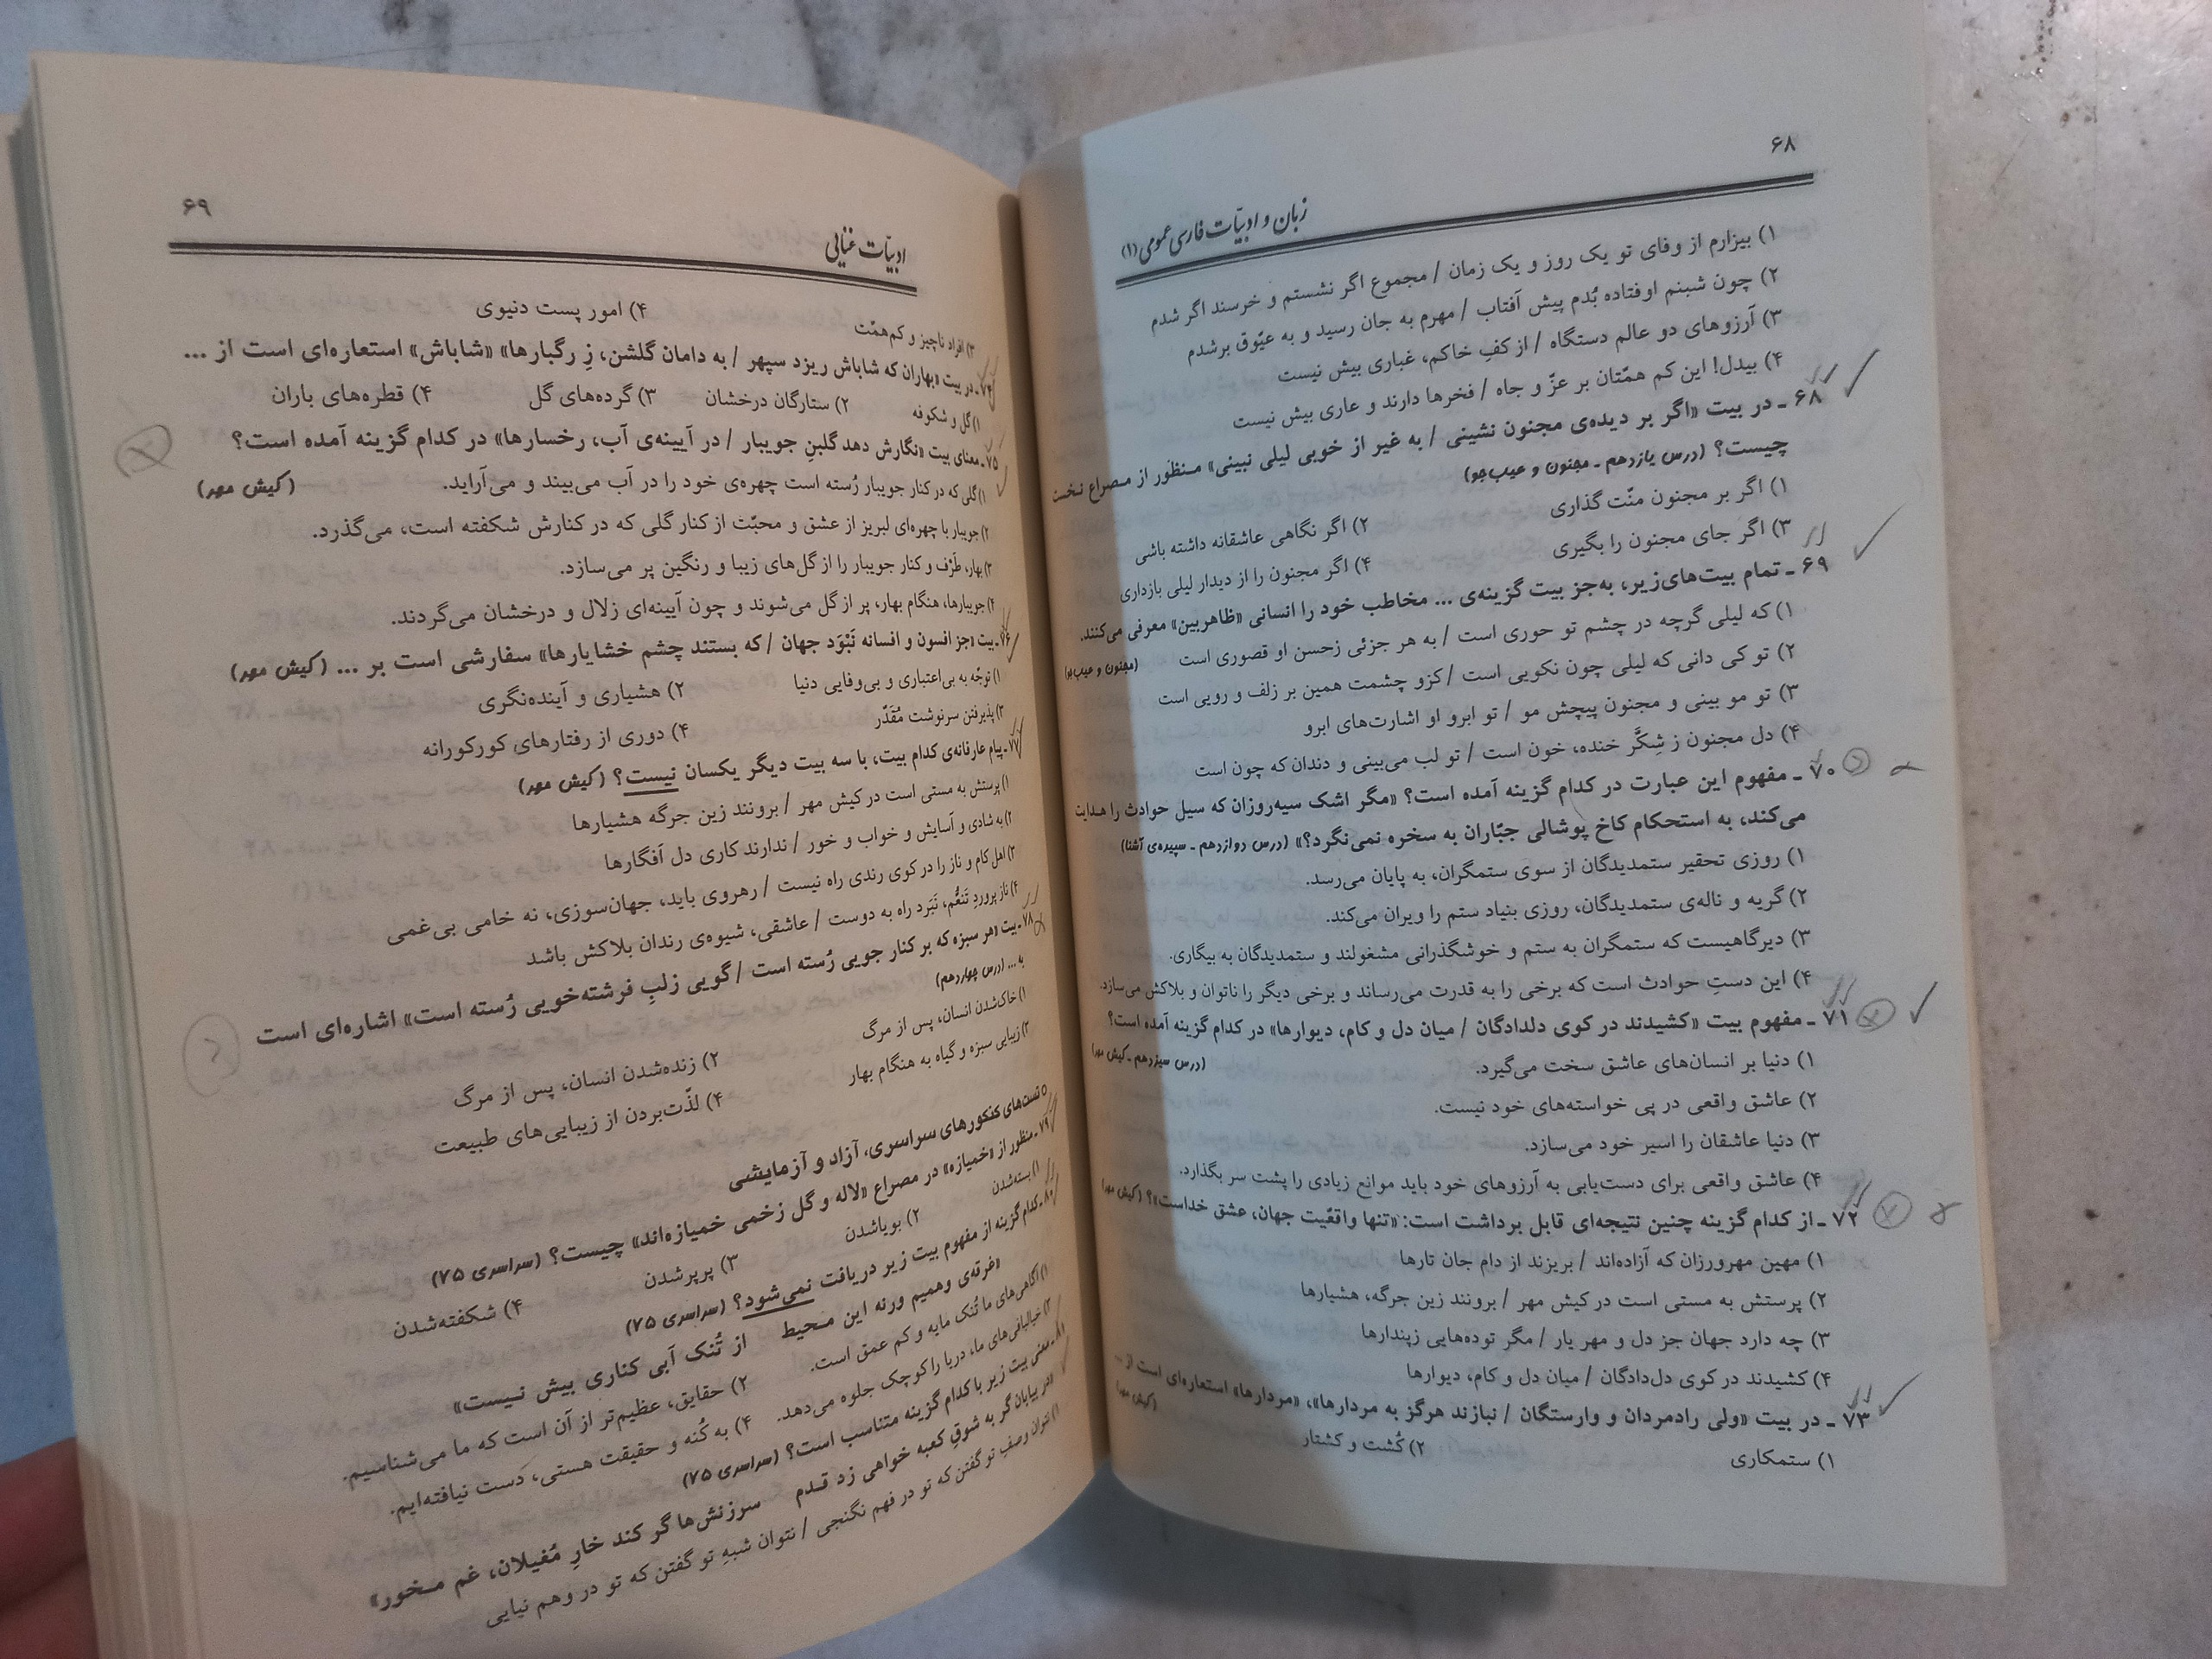 ۶۸
زبان و ادبیّات فارسی عمومی (۱)
۱) بیزارم از وفای تو یک روز و یک زمان / مجموع اگر نشستم و خرسند اگر شدم
۲) چون شبنم اوفتاده بُدم پیش آفتاب / مهرم به جان رسید و به عیّوق برشدم
۳) آرزوهای دو عالم دستگاه / از کفِ خاکم، غباری بیش نیست
۴) بیدل! این کم همّتان بر عزّ و جاه / فخرها دارند و عاری بیش نیست
۶۸ ـ در بیت «اگر بر دیده‌ی مجنون نشینی / به غیر از خوبی لیلی نبینی» منظور از مصراع نخست
چیست؟ (درس یازدهم ـ مجنون و عیب‌جو)
۱) اگر بر مجنون منّت گذاری
۲) اگر نگاهی عاشقانه داشته باشی
۳) اگر جای مجنون را بگیری
۴) اگر مجنون را از دیدار لیلی بازداری
۶۹ ـ تمام بیت‌های‌زیر، به‌جز بیت گزینه‌ی ... مخاطب خود را انسانی «ظاهربین» معرفی می‌کنند.
(مجنون و عیب‌جو)
۱) که لیلی گرچه در چشم تو حوری است / به هر جزئی زحسن او قصوری است
۲) تو کی دانی که لیلی چون نکویی است / کزو چشمت همین بر زلف و رویی است
۳) تو مو بینی و مجنون پیچش مو / تو ابرو او اشارت‌های ابرو
۴) دل مجنون ز شِکَّر خنده، خون است / تو لب می‌بینی و دندان که چون است
۷۰ ـ مفهوم این عبارت در کدام گزینه آمده است؟ «مگر اشک سیه‌روزان که سیل حوادث را هدایت
می‌کند، به استحکام کاخ پوشالی جبّاران به سخره نمی‌نگرد؟» (درس دوازدهم ـ سپیده‌ی آشنا)
۱) روزی تحقیر ستمدیدگان از سوی ستمگران، به پایان می‌رسد.
۲) گریه و ناله‌ی ستمدیدگان، روزی بنیاد ستم را ویران می‌کند.
۳) دیرگاهیست که ستمگران به ستم و خوشگذرانی مشغولند و ستمدیدگان به بیگاری.
۴) این دستِ حوادث است که برخی را به قدرت می‌رساند و برخی دیگر را ناتوان و بلاکش می‌سازد.
۷۱ ـ مفهوم بیت «کشیدند در کوی دلدادگان / میان دل و کام، دیوارها» در کدام گزینه آمده است؟
(درس سیزدهم ـ کیش مهر)
۱) دنیا بر انسان‌های عاشق سخت می‌گیرد.
۲) عاشق واقعی در پی خواسته‌های خود نیست.
۳) دنیا عاشقان را اسیر خود می‌سازد.
۴) عاشق واقعی برای دست‌یابی به آرزوهای خود باید موانع زیادی را پشت سر بگذارد.
۷۲ ـ از کدام گزینه چنین نتیجه‌ای قابل برداشت است: «تنها واقعّیت جهان، عشق خداست»؟ (کیش مهر)
۱) مهین مهرورزان که آزاده‌اند / بریزند از دام جان تارها
۲) پرستش به مستی است در کیش مهر / برونند زین جرگه، هشیارها
۳) چه دارد جهان جز دل و مهر یار / مگر توده‌هایی زپندارها
۴) کشیدند در کوی دل‌دادگان / میان دل و کام، دیوارها
۷۳ ـ در بیت «ولی رادمردان و وارستگان / نبازند هرگز به مردارها»، «مردارها» استعاره‌ای است از ...
(کیش مهر)
۱) ستمکاری
۲) کُشت و کشتار
۶۹
ادبیّات غنایی
۳) افراد ناچیز و کم‌همّت
۴) امور پست دنیوی
۷۴ ـ در بیت «بهاران که شاباش ریزد سپهر / به دامان گلشن، زِ رگبارها» «شاباش» استعاره‌ای است از ...
۱) گل و شکوفه
۲) ستارگان درخشان
۳) گرده‌های گل
۴) قطره‌های باران
۷۵ ـ معنای بیت «نگارش دهد گلبنِ جویبار / در آیینه‌ی آب، رخسارها» در کدام گزینه آمده است؟
(کیش مهر)
۱) گلی که در کنار جویبار رُسته است چهره‌ی خود را در آب می‌بیند و می‌آراید.
۲) جویبار با چهره‌ای لبریز از عشق و محبّت از کنار گلی که در کنارش شکفته است، می‌گذرد.
۳) بهار، طَرْف و کنار جویبار را از گل‌های زیبا و رنگین پر می‌سازد.
۴) جویبارها، هنگام بهار، پر از گل می‌شوند و چون آیینه‌ای زلال و درخشان می‌گردند.
۷۶ ـ بیت «جز افسون و افسانه نَبْوَد جهان / که بستند چشم خشایارها» سفارشی است بر ... (کیش مهر)
۱) توجّه به بی‌اعتباری و بی‌وفایی دنیا
۲) هشیاری و آینده‌نگری
۳) پذیرفتن سرنوشت مُقَدّر
۴) دوری از رفتارهای کورکورانه
۷۷ ـ پیام عارفانه‌ی کدام بیت، با سه بیت دیگر یکسان نیست؟ (کیش مهر)
۱) پرستش به مستی است در کیش مهر / برونند زین جرگه هشیارها
۲) به شادی و آسایش و خواب و خور / ندارند کاری دل آفگارها
۳) اهل کام و ناز را در کوی رندی راه نیست / رهروی باید، جهان‌سوزی، نه خامی بی‌غمی
۴) ناز پروردِ تَنعُّم، نَبَرد راه به دوست / عاشقی، شیوه‌ی رندان بلاکش باشد
۷۸ ـ بیت «هر سبزه که بر کنار جویی رُسته است / گویی زلبِ فرشته‌خویی رُسته است» اشاره‌ای است
به ... (درس چهاردهم)
۱) خاک‌شدن انسان، پس از مرگ
۲) زنده‌شدن انسان، پس از مرگ
۳) زیبایی سبزه و گیاه به هنگام بهار
۴) لذّت‌بردن از زیبایی‌های طبیعت
○ تست‌های کنکورهای سراسری، آزاد و آزمایشی
۷۹ ـ منظور از «خمیازه» در مصراع «لاله و گل زخمی خمیازه‌اند» چیست؟ (سراسری ۷۵)
۱) بسته‌شدن
۲) بویاشدن
۳) پرپرشدن
۴) شکفته‌شدن
۸۰ ـ کدام گزینه از مفهوم بیت زیر دریافت نمی‌شود؟ (سراسری ۷۵)
«غرقه‌ی وهمیم ورنه این محیط از تُنک آبی کناری بیش نیست»
۱) آگاهی‌های ما تُنک مایه و کم عمق است.
۲) حقایق، عظیم‌تر از آن است که ما می‌شناسیم.
۳) خیالبافی‌های ما، دریا را کوچک جلوه می‌دهد.
۴) به کُنه و حقیقت هستی، دَست نیافته‌ایم.
۸۱ ـ معنی بیت زیر با کدام گزینه متناسب است؟ (سراسری ۷۵)
«در بیابان گر به شوقِ کعبه خواهی زد قدم سرزنش‌ها گر کند خارِ مُغیلان، غم مخور»
۱) نتوان وصفِ تو گفتن که تو در فهم نگنجی / نتوان شبهِ تو گفتن که تو در وهم نیایی